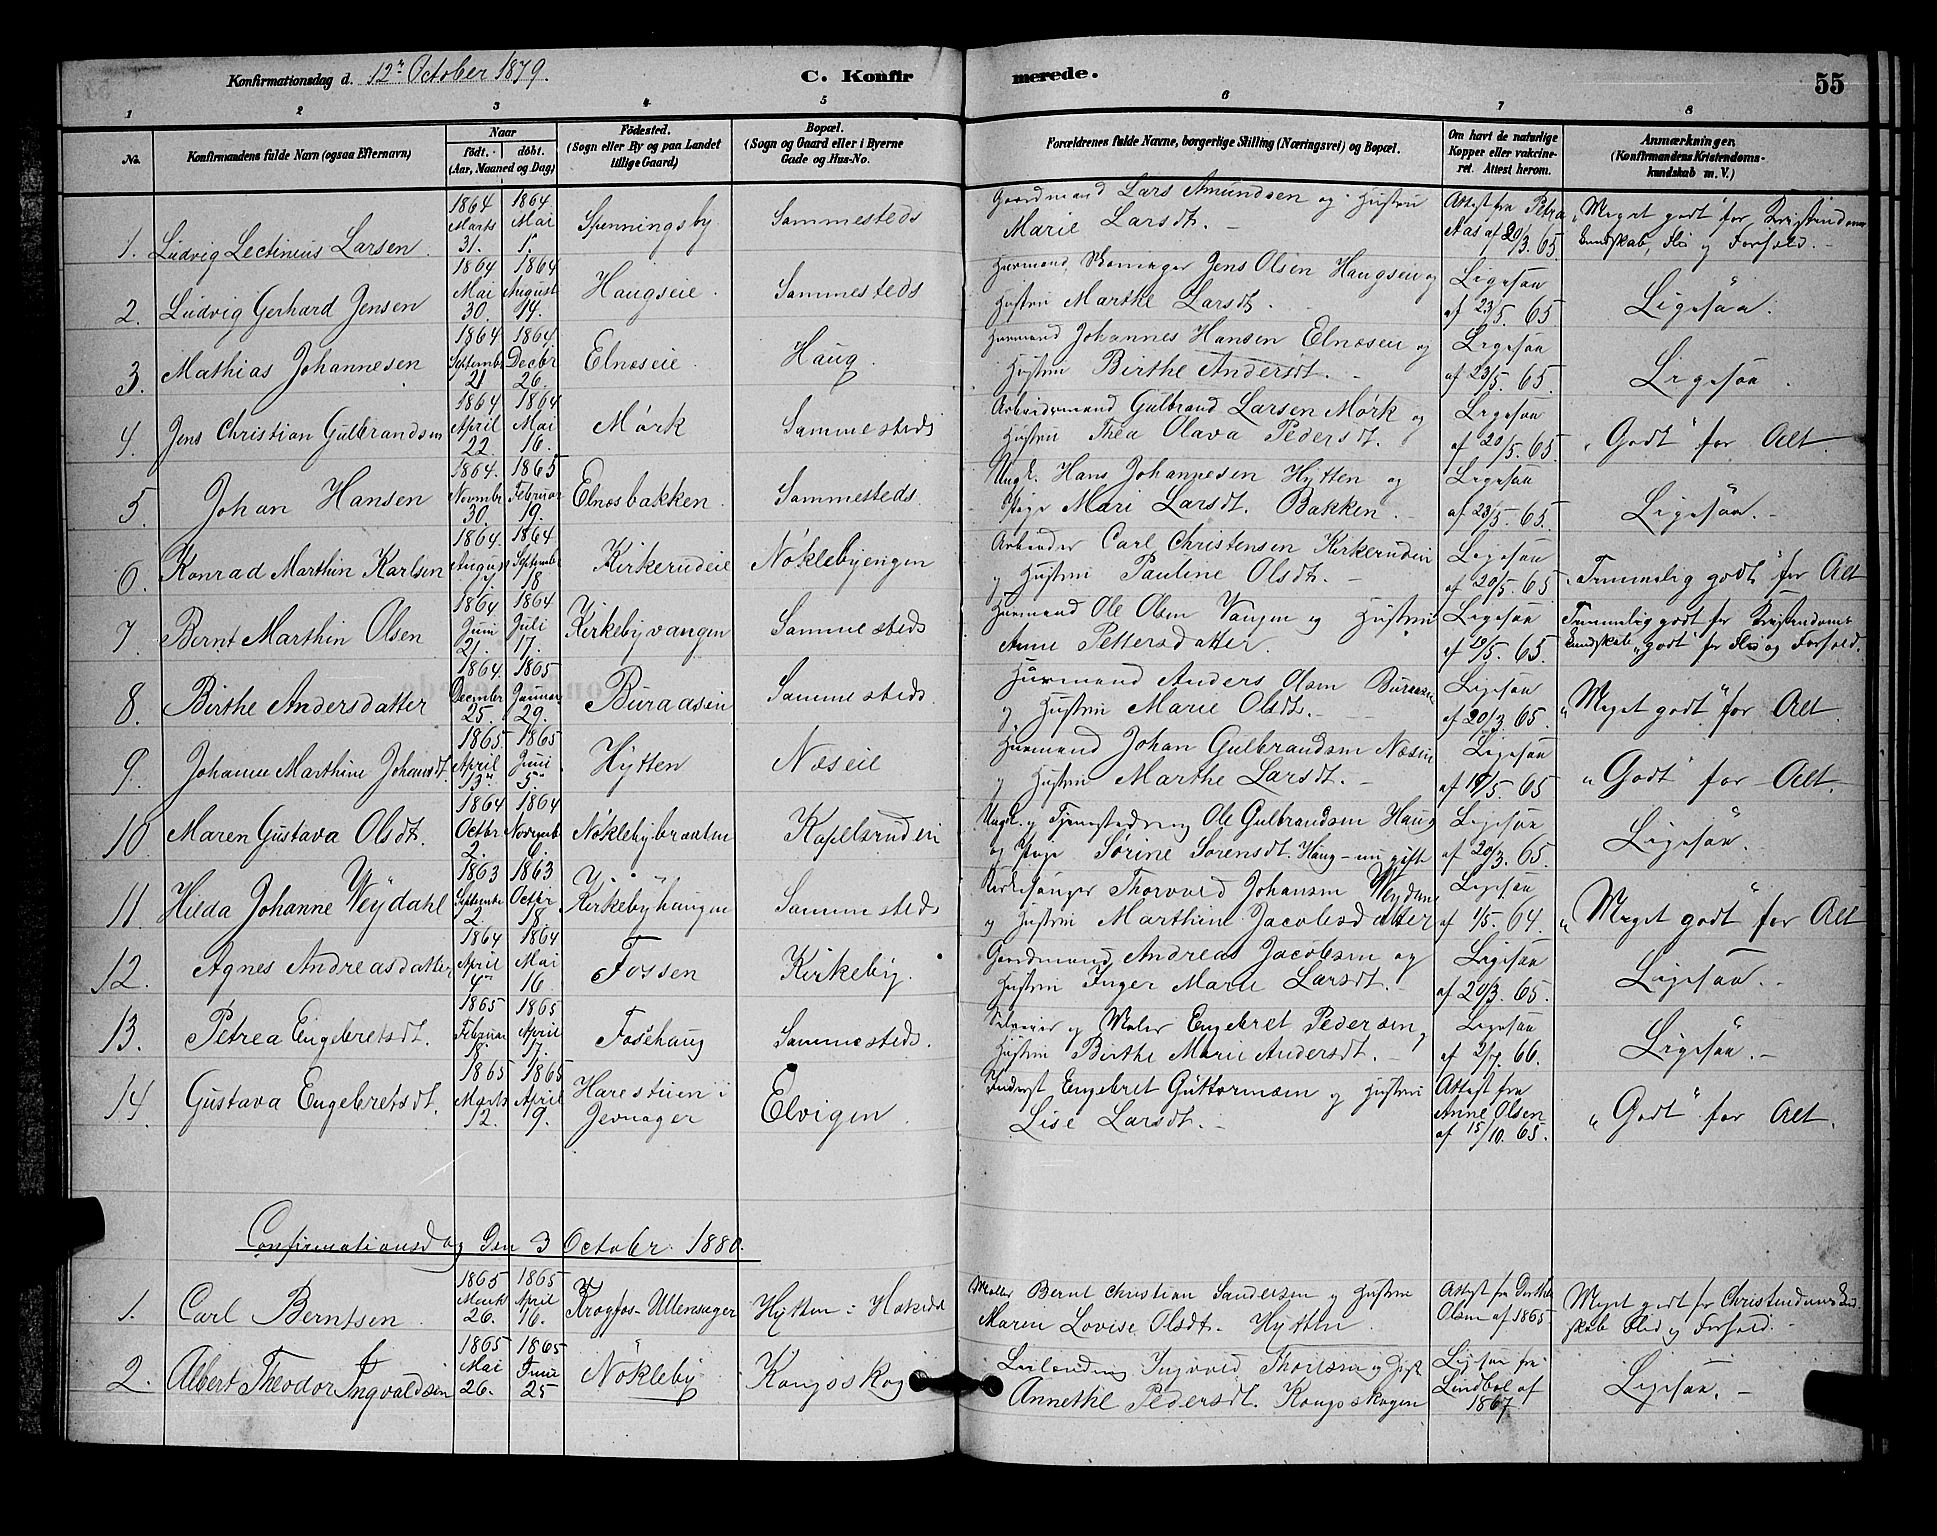 Konfirmationsdag d. 12te October 1879.
C. Konfirmerede.
55
1 2 3 4 5 6 7 8
No.
Konfirmandens fulde Navn (ogsaa Efternavn)
Naar
født. døbt.
(Aar, Maaned og Dag)
Fødested.
(Sogn eller By og paa Landet
tillige Gaard)
Bopæl.
(Sogn og Gaard eller i Byerne
Gade og Hus-No.
Forældrenes fulde Navne, borgerlige Stilling (Næringsvei) og Bopæl.
Om havt de naturlige
Kopper eller vakcine-
ret. Attest herom.
Anmærkninger.
(Konfirmandens Kristendoms-
kundskab m. V.)
1. Ludvig Lectinius Larsen. 1864 Marts 31. 1864 Mai 1. Spenningsby. Sammesteds Gaardmand Lars Amundsen og Hustru Marie Larsdt. Attest fra Petra Aas af 20/3. 65. "Meget godt" for Kristendoms kundskab, Flid og Forhold.
2. Ludvig Gerhard Jensen 1864 Mai 30. 1864 August 14. Haugseie. Sammesteds Huusmand, Jens Olsen Haugseie og Hustru Marthe Larsdt. Ligesaa af 23/5. 65. Ligesaa.
3. Mathias Johannesen 1864 September 21 1864 Decbr 26. Elnæseie. Haug. Huusmand Johannes Hansen Elnæseie og Hustru Birthe Andersdt. Ligesaa af 23/5. 65. Ligesaa.
4. Jens Christian Gulbrandsen 1864 April 22. 1864 Mai 16. Mørk Sammesteds Arbeidsmand Gulbrand Larsen Mørk og Hustru Thea Olava Pedersdt. Ligesaa af 20/5. 65. "Godt" for Alt.
5. Johan Hansen 1864. Novembr 30. 1865 Februar 19. Elnæsbakken. Sammesteds. Ungk. Hans Johannesen Hytten og Pige Mari Larsdt. Bakken. Ligesaa af 23/5. 65. Ligesaa.
6. Konrad Marthin Karlsen 1864. August 7. 1864 Septembr 18. Kirkerudeie Nøklebyengen Arbeider Carl Christensen Kirkerudeie og Hustru Pauline Olsdt. Ligesaa af 20/5. 65. "Temmelig godt" for Alt
7. Bernt Marthin Olsen 1864 Juni 21. 1864 Juli 17. Kirkebyvangen Sammesteds Huusmand Ole Olsen Vangen og Hustru Anne Pettersdatter. Ligesaa af 19/5. 65. Temmelig godt for Kristendoms kundskab, "godt" for Flid og Forhold.
8. Birthe Andersdatter 1864. December 25. 1865 Januar 29. Buraasen Sammesteds. Huusmand Anders Olsen Buraasen og Hustru Marie Olsdt. Ligesaa af 20/3. 65. "Meget godt" for Alt.
9. Johanne Marthine Johansdt. 1865. April 13de 1865 Juni 5te Hytten Næseie Huusmand Johan Gulbrandsen Næseie og Hustru Marthe Larsdt. Ligesaa af 19/5. 65 "Godt" for Alt.
10. Maren Gustava Olsdt. 1864 Octbr 2. 1864 Novemb 6. Nøklebybraaten Kapelsrudeie Ungk. og Ole Gulbrandsen Haug og Pige Sørine Sørensdt. Haug - nu gift Ligesaa af 20/3. 65. Ligesaa.
11. Hilda Johanne Weydahl 1863 September 2. 1863 Octbr 18. Kirkebyhaugen Sammesteds Kirkesanger Thorvald Johansen Weydahl og Hustru Marthine Jacobsdatter Ligesaa af 1/5. 64. "Meget godt" for Alt
12. Agnes Andreasdatter 1864 April 4de 1864 Mai 16. Fossen Kirkeby. Gaardmand Andreas Jacobsen og Hustru Inger Marie Larsdt. Ligesaa af 20/3. 65. Ligesaa.
13. Petrea Engebretsdt. 1865 Februar 18. 1865 April 17. Fossehaug Sammesteds. Selveier og Møller Engebret Pedersen og Hustru Birthe Marie Andersdt. Ligesaa af 2/7. 66. Ligesaa.
14. Gustava Engebretsdt. 1865 Marts 12. 1865 April 9. Harestuen i Jevnager Elvigen Inderst Engebret Guttormsen og Hustru Lise Larsdt. Attest fra Anne Olsen af 15/10. 65. "Godt" for Alt.
Confirmationsdag Den 3 October 1880.
1. Carl Berntsen. 1865 Marts 26. 1865 April 16. Krogfos - Ullensager Hytten i Hakedal Møller Bernt Christian Sandersen og Hustru Maren Lovise Olsdt. Hytten. Attest fra Dorthe Olsen af 1865 Meget godt for Christendomskundskab Flid og Forhold.
2. Albert Theodor Ingvaldsen 1865 Mai 26. 1865 Juni 25 Nøkleby Kongsskog Leilænding Ingvald Thoresen og Hust. Annethe Pedersdt. Kongsskogen Ligesaa fra Lindbol af 1867 Ligesaa.